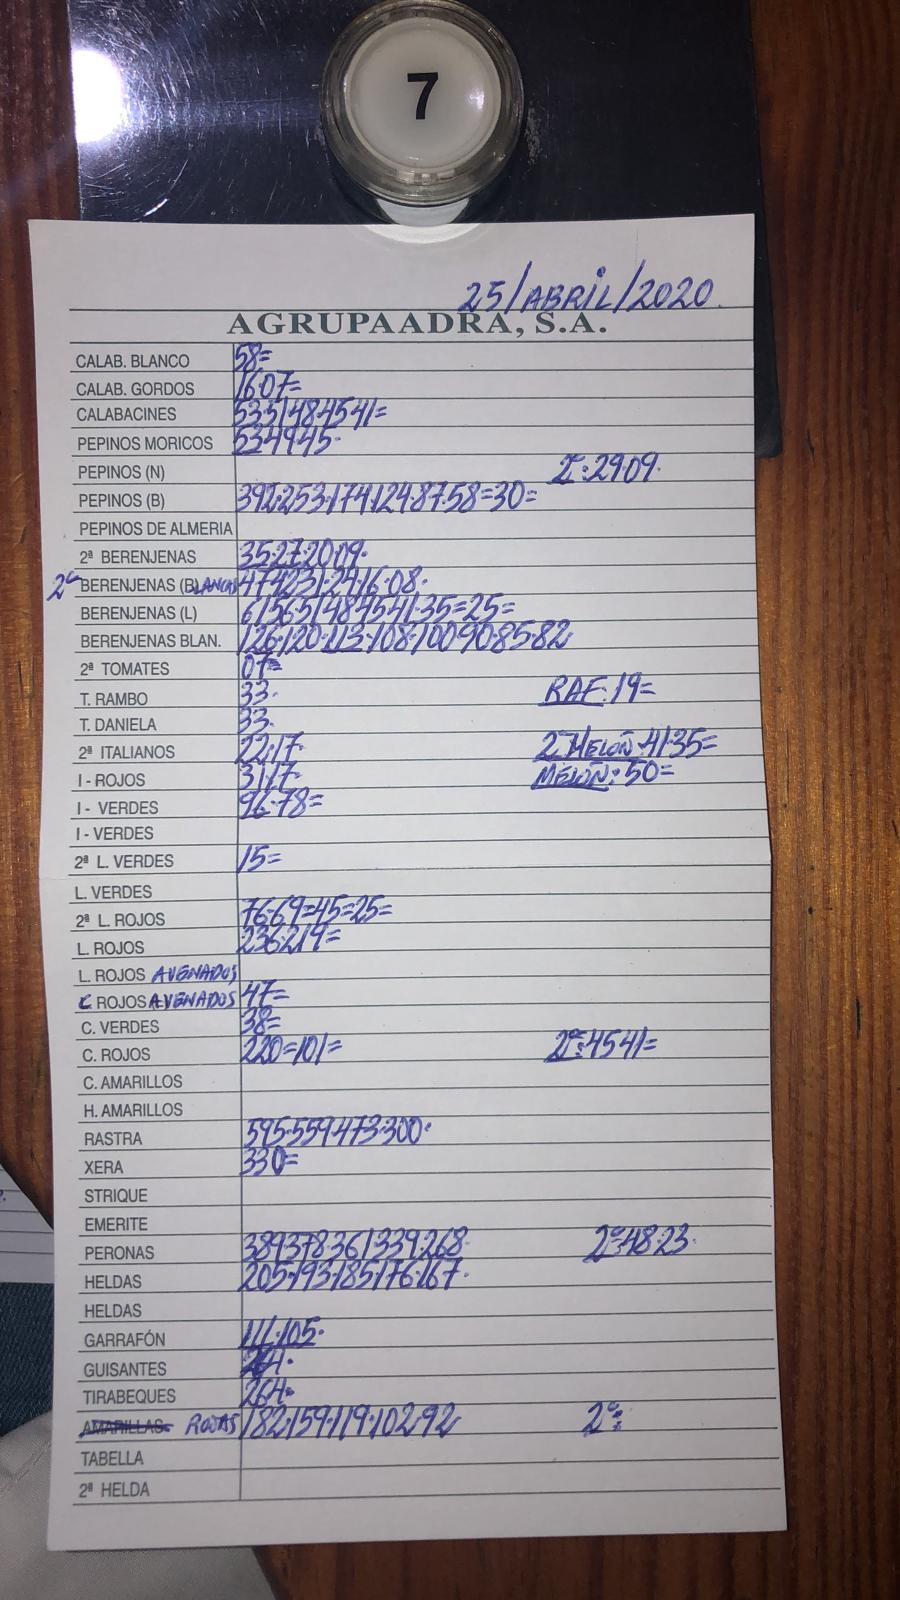 7
25/ABRIL/2020
AGRUPAADRA, S.A.
CALAB. BLANCO 58=
CALAB. GORDOS 16·07=
CALABACINES 53·51·48·45·41=
PEPINOS MORICOS 53·49·45·
PEPINOS (N) 2ª:29·09·
PEPINOS (B) 392·253·174·124·87·58=30=
PEPINOS DE ALMERIA
2ª BERENJENAS 35·27·20·09·
2ª BERENJENAS (BLANCAS) 47·42·31·24·16·08·
BERENJENAS (L) 61·56·51·48·45·41·35=25=
BERENJENAS BLAN. 126·120·113·108·100·90·85·82
2ª TOMATES 07=
T. RAMBO 33· RAF: 19=
T. DANIELA 33·
2ª ITALIANOS 22·17· 2ª MELON: 41·35=
I - ROJOS 31·17· MELON: 50=
I - VERDES 96·78=
I - VERDES
2ª L. VERDES 15=
L. VERDES
2ª L. ROJOS 76·69=45=25=
L. ROJOS 236·219=
L. ROJOS AVENADOS
C ROJOS AVENADOS 47=
C. VERDES 38=
C. ROJOS 220=101= 2ª:45·41=
C. AMARILLOS
H. AMARILLOS
RASTRA 595·559·473·300·
XERA 330=
STRIQUE
EMERITE
PERONAS 389·378·361·339·268· 2ª:48·23·
HELDAS 205·193·185·176·167·
HELDAS
GARRAFÓN 111·105·
GUISANTES
TIRABEQUES 264·
AMARILLAS ROJAS 182·159·119·102·92 2ª:
TABELLA
2ª HELDA